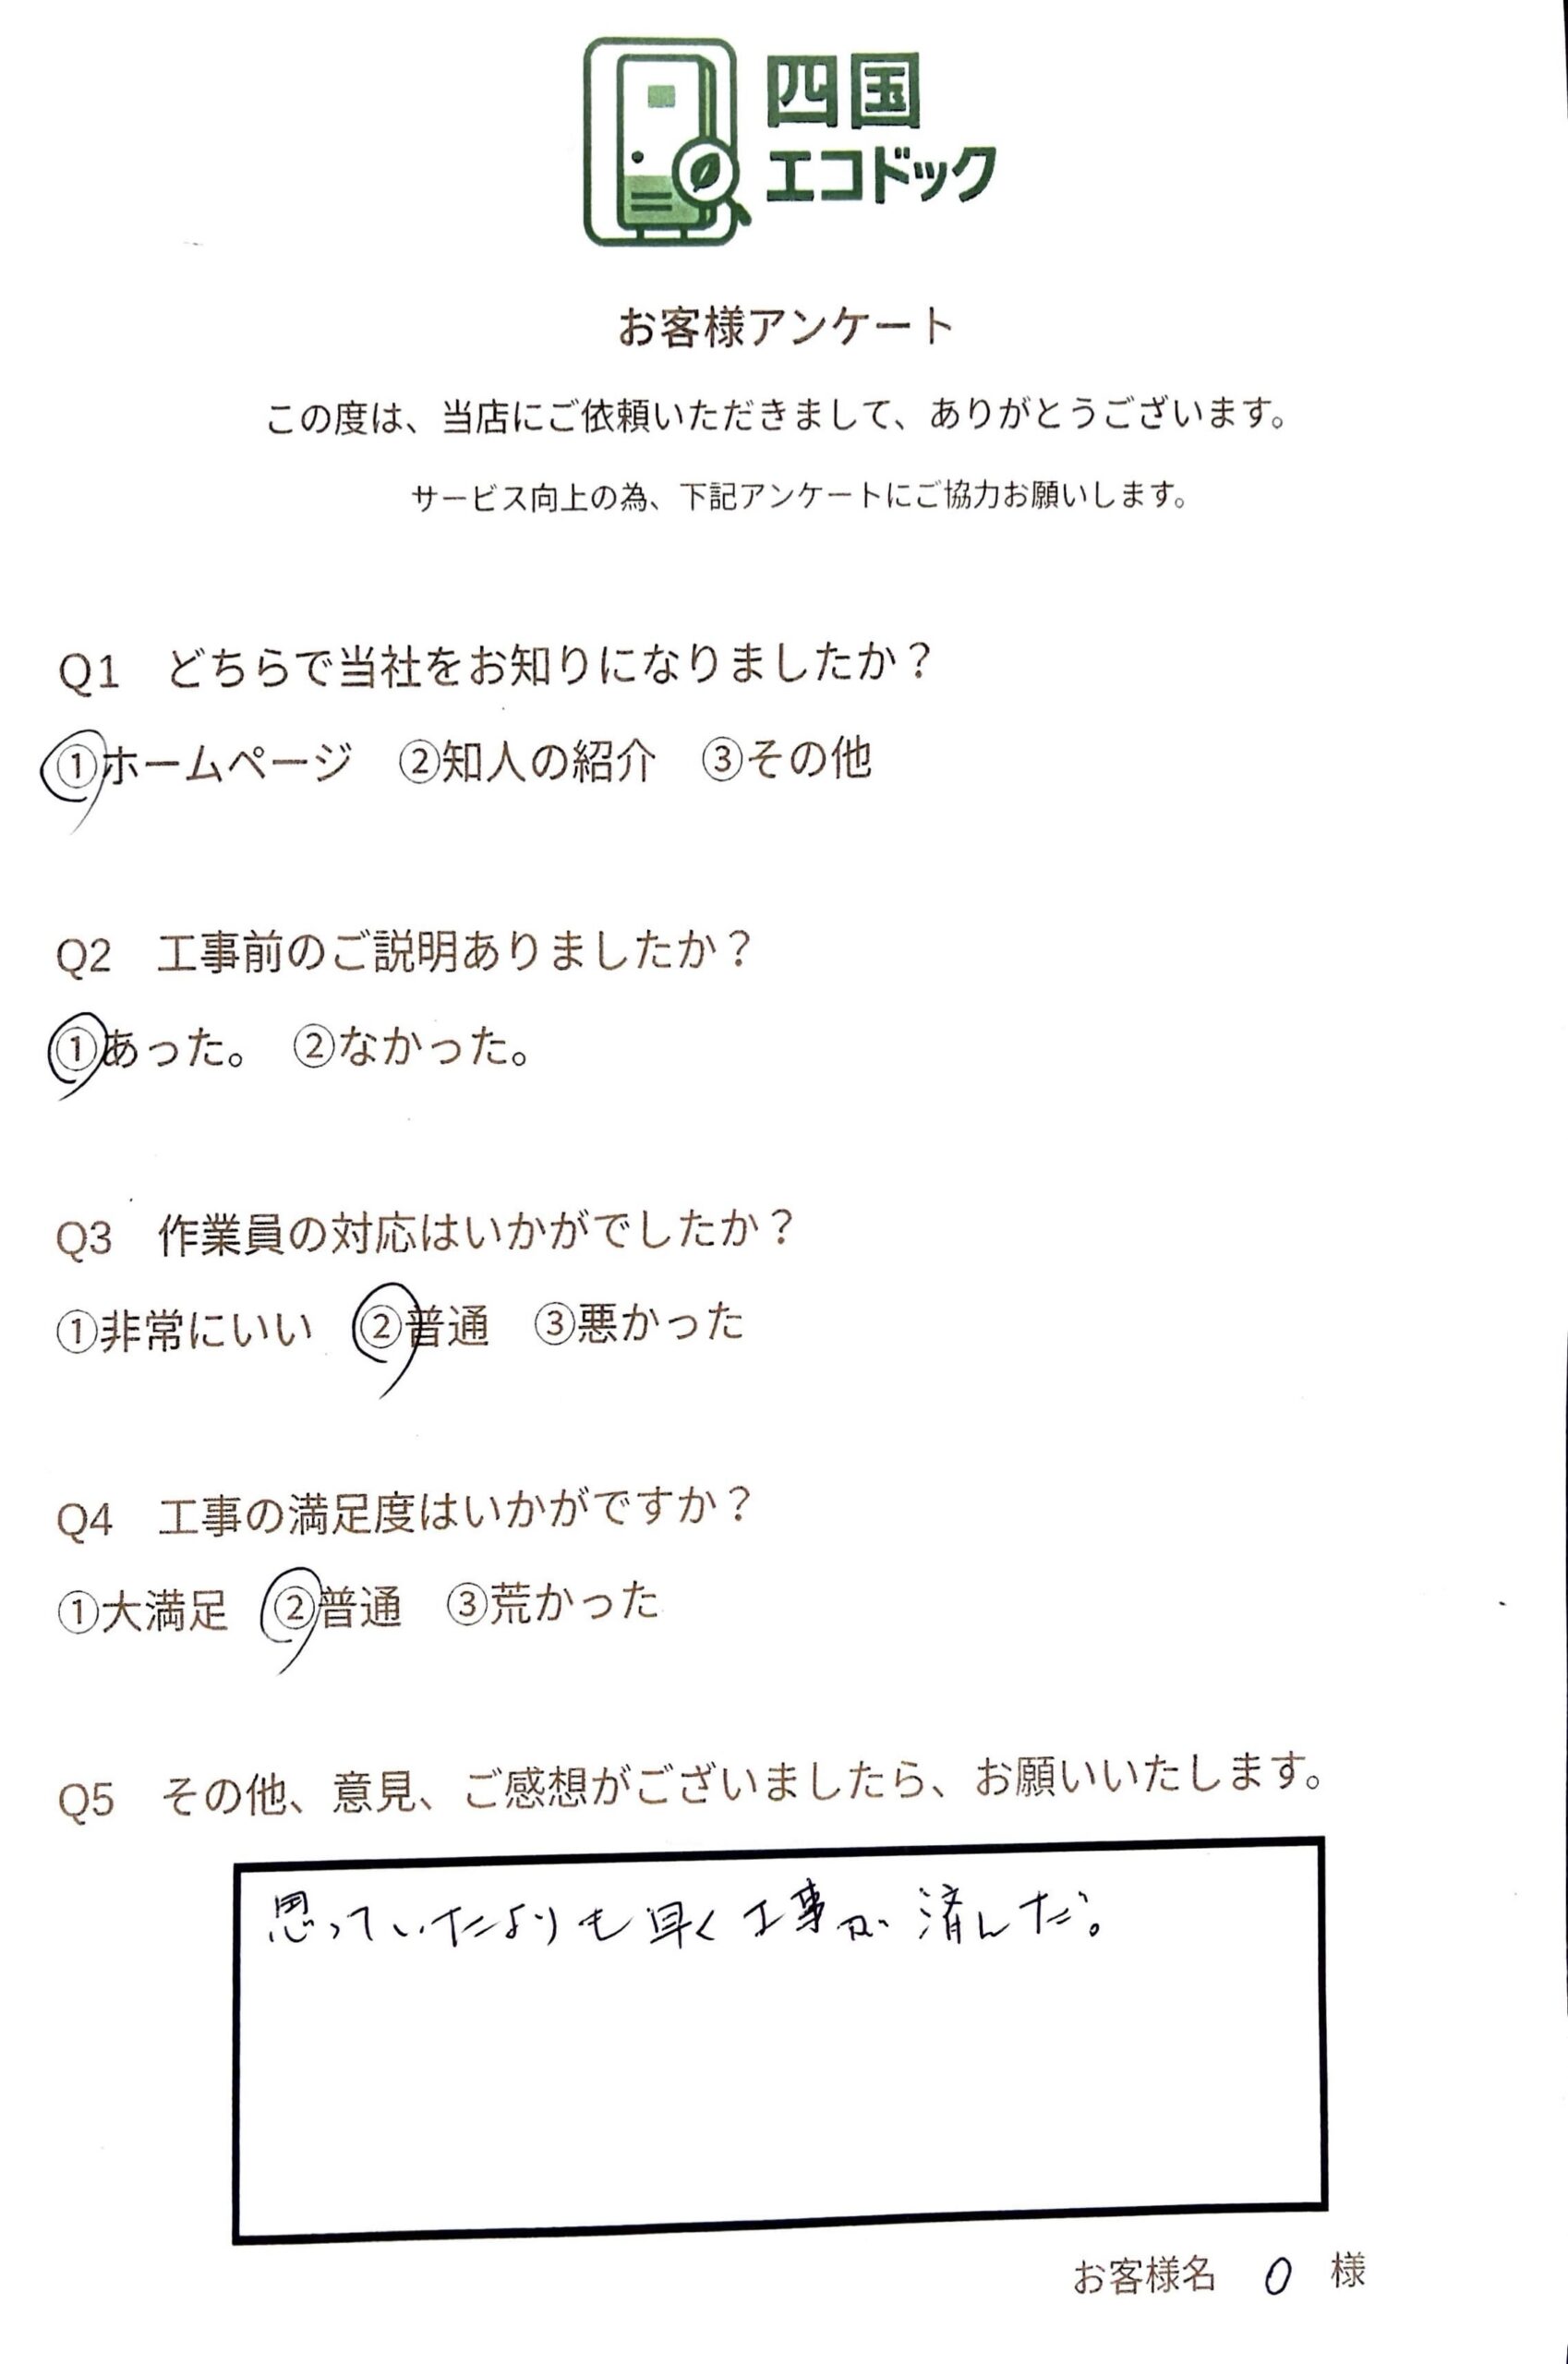 四国
エコドック
お客様アンケート
この度は、当店にご依頼いただきまして、ありがとうございます。
サービス向上の為、下記アンケートにご協力お願いします。
Q1 どちらで当社をお知りになりましたか？
①ホームページ ②知人の紹介 ③その他
Q2 工事前のご説明ありましたか？
①あった。 ②なかった。
Q3 作業員の対応はいかがでしたか？
①非常にいい ②普通 ③悪かった
Q4 工事の満足度はいかがですか？
①大満足 ②普通 ③荒かった
Q5 その他、意見、ご感想がございましたら、お願いいたします。
思っていたよりも早く工事が済んだ。
お客様名 O 様